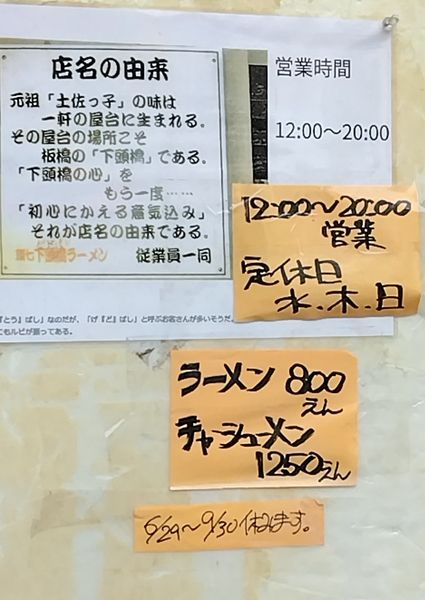 店名の由来
元祖「土佐っ子」の味は
一軒の屋台に生まれる。
その屋台の場所こそ
板橋の「下頭橋」である。
「下頭橋の心」を
もう一度……
「初心にかえる意気込み」
それが店名の由来である。
下頭橋ラーメン 従業員一同
営業時間
12:00〜20:00
12:00〜20:00
営業
定休日
水、木、日
『とう』ばし」なのだが、「げ『ど』ばし」と呼ぶお客さんが多いそうだ。
にもルビが振ってある。
ラーメン 800
えん
チャーシューメン
1250えん
6/29〜9/30 休みます。